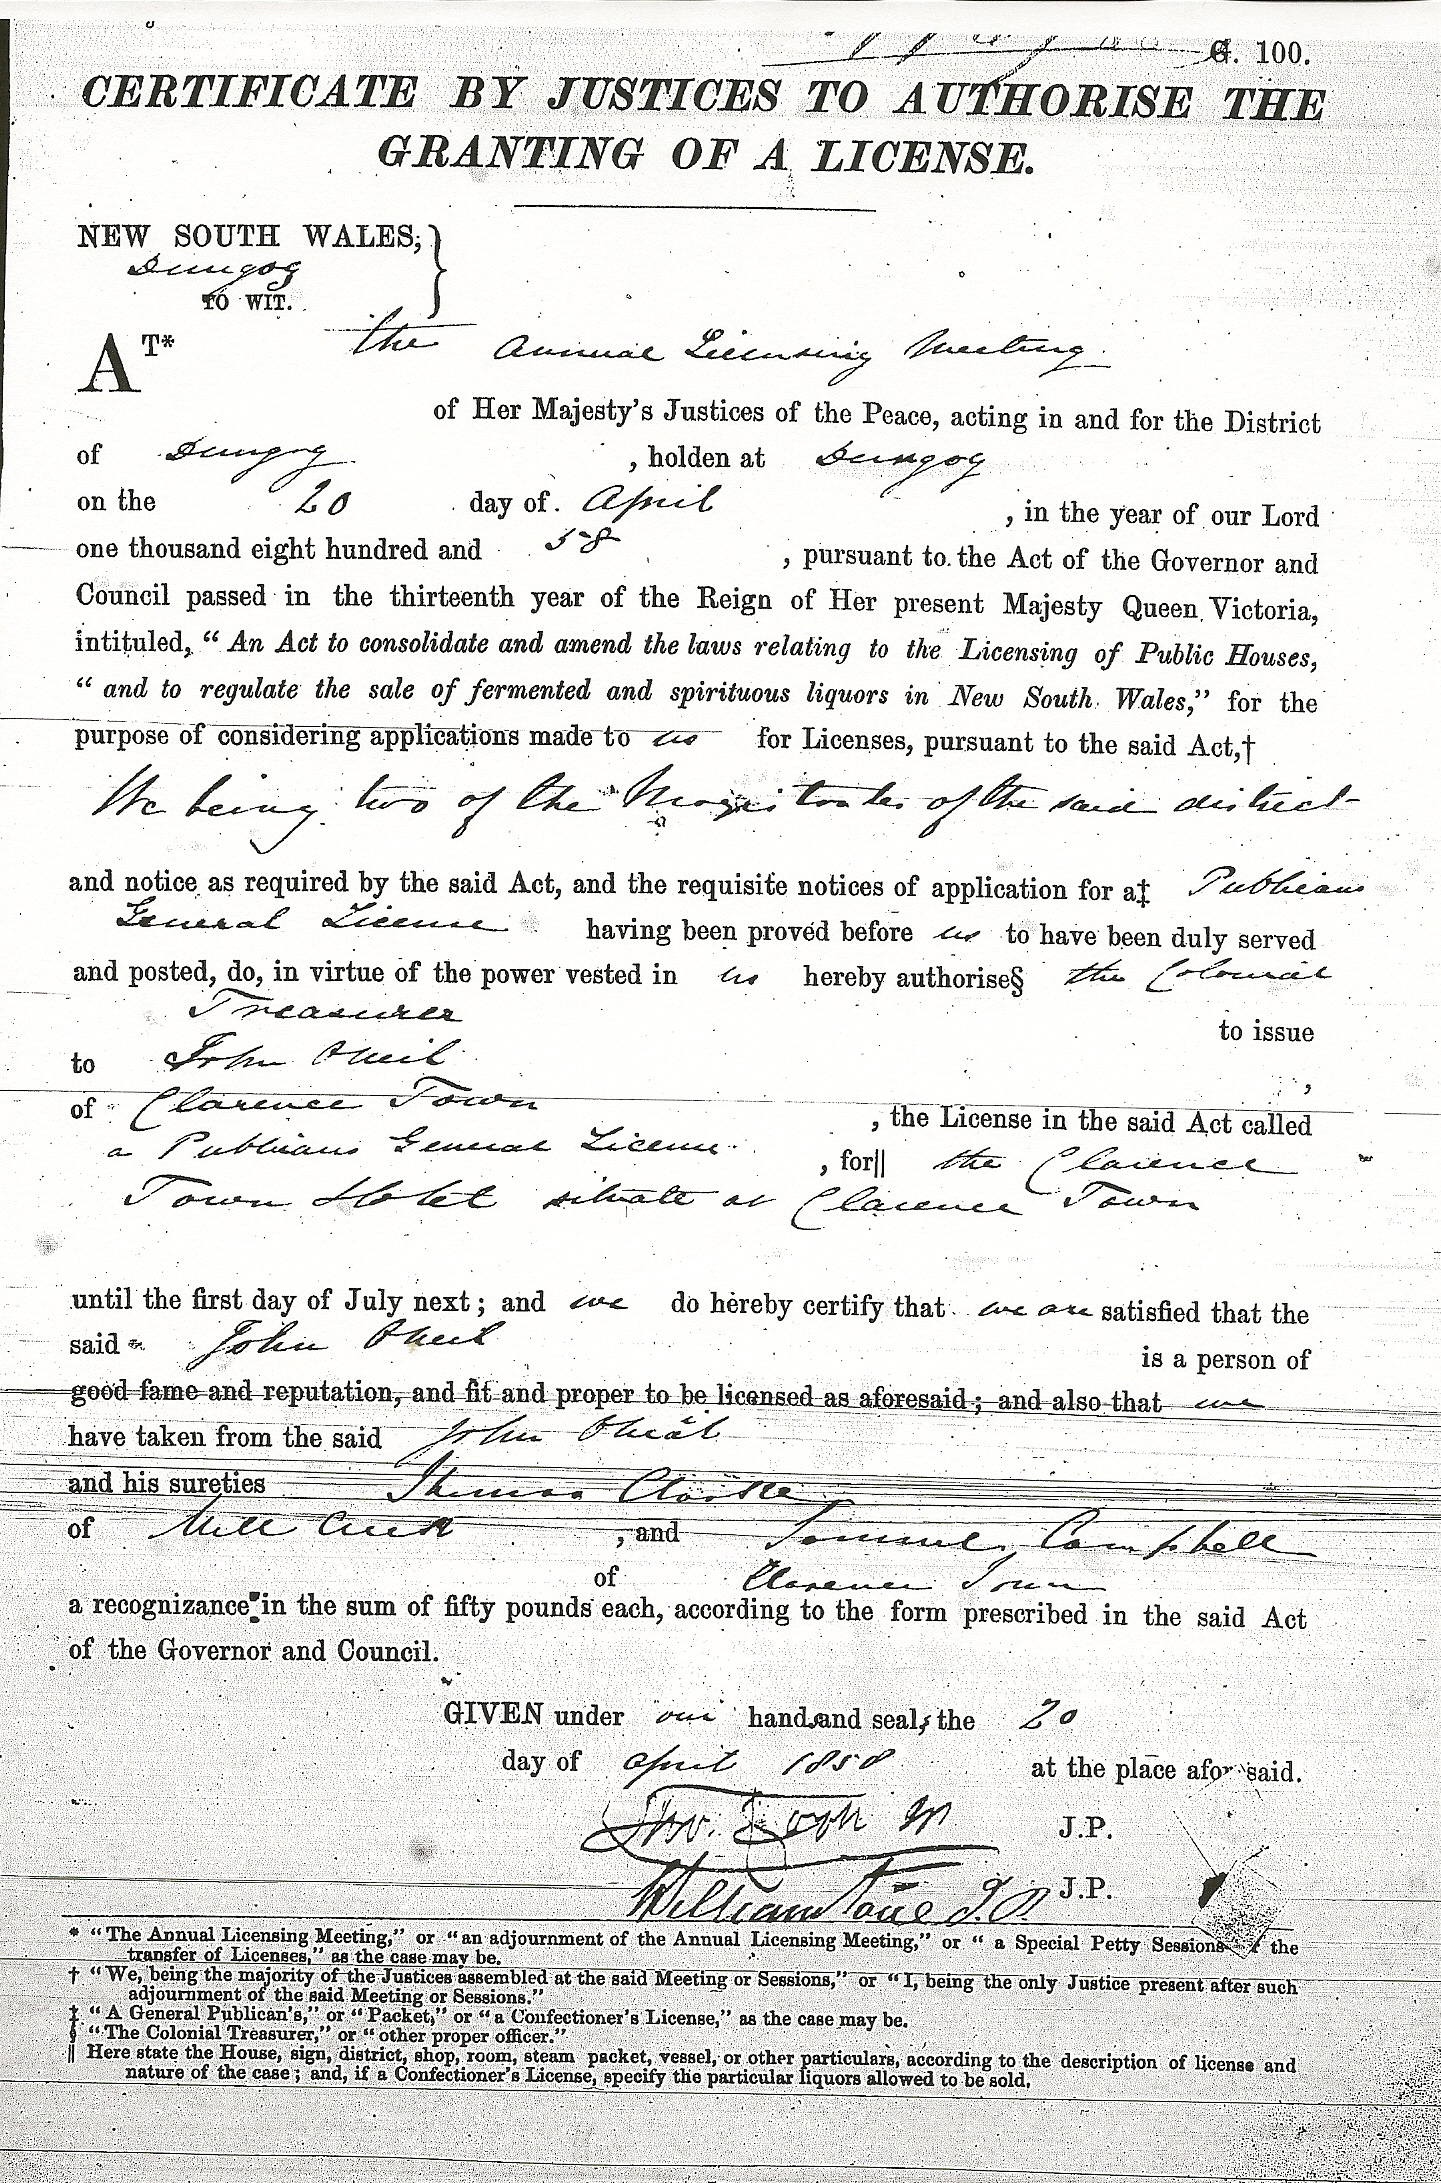 G. 100.
CERTIFICATE BY JUSTICES TO AUTHORISE THE
GRANTING OF A LICENSE.
NEW SOUTH WALES,
Dungog
TO WIT.
AT* the Annual Licensing Meeting
of Her Majesty's Justices of the Peace, acting in and for the District
of Dungog, holden at Dungog
on the 20 day of April, in the year of our Lord
one thousand eight hundred and 58, pursuant to the Act of the Governor and
Council passed in the thirteenth year of the Reign of Her present Majesty Queen Victoria,
intituled, "An Act to consolidate and amend the laws relating to the Licensing of Public Houses,
"and to regulate the sale of fermented and spirituous liquors in New South Wales," for the
purpose of considering applications made to us for Licenses, pursuant to the said Act,†
We being two of the Magistrates of the said district
and notice as required by the said Act, and the requisite notices of application for a‡ Publicans
General License having been proved before us to have been duly served
and posted, do, in virtue of the power vested in us hereby authorise§ the Colonial
Treasurer to issue
to John O'Neil,
of Clarence Town, the License in the said Act called
a Publicans General License, for|| the Clarence
Town Hotel situate at Clarence Town
until the first day of July next; and we do hereby certify that we are satisfied that the
said John O'Neil is a person of
good fame and reputation, and fit and proper to be licensed as aforesaid; and also that we
have taken from the said John O'Neil
and his sureties Thomas Clarke
of Mill Creek, and Samuel Campbell
of Clarence Town
a recognizance in the sum of fifty pounds each, according to the form prescribed in the said Act
of the Governor and Council.
GIVEN under our hands and seals the 20
day of April 1858 at the place aforesaid.
J.P.
William J.P. J.P.
* "The Annual Licensing Meeting," or "an adjournment of the Annual Licensing Meeting," or "a Special Petty Sessions the
transfer of Licenses," as the case may be.
† "We, being the majority of the Justices assembled at the said Meeting or Sessions," or "I, being the only Justice present after such
adjournment of the said Meeting or Sessions."
‡ "A General Publican's," or "Packet," or "a Confectioner's License," as the case may be.
§ "The Colonial Treasurer," or "other proper officer."
|| Here state the House, sign, district, shop, room, steam packet, vessel, or other particulars, according to the description of license and
nature of the case; and, if a Confectioner's License, specify the particular liquors allowed to be sold.